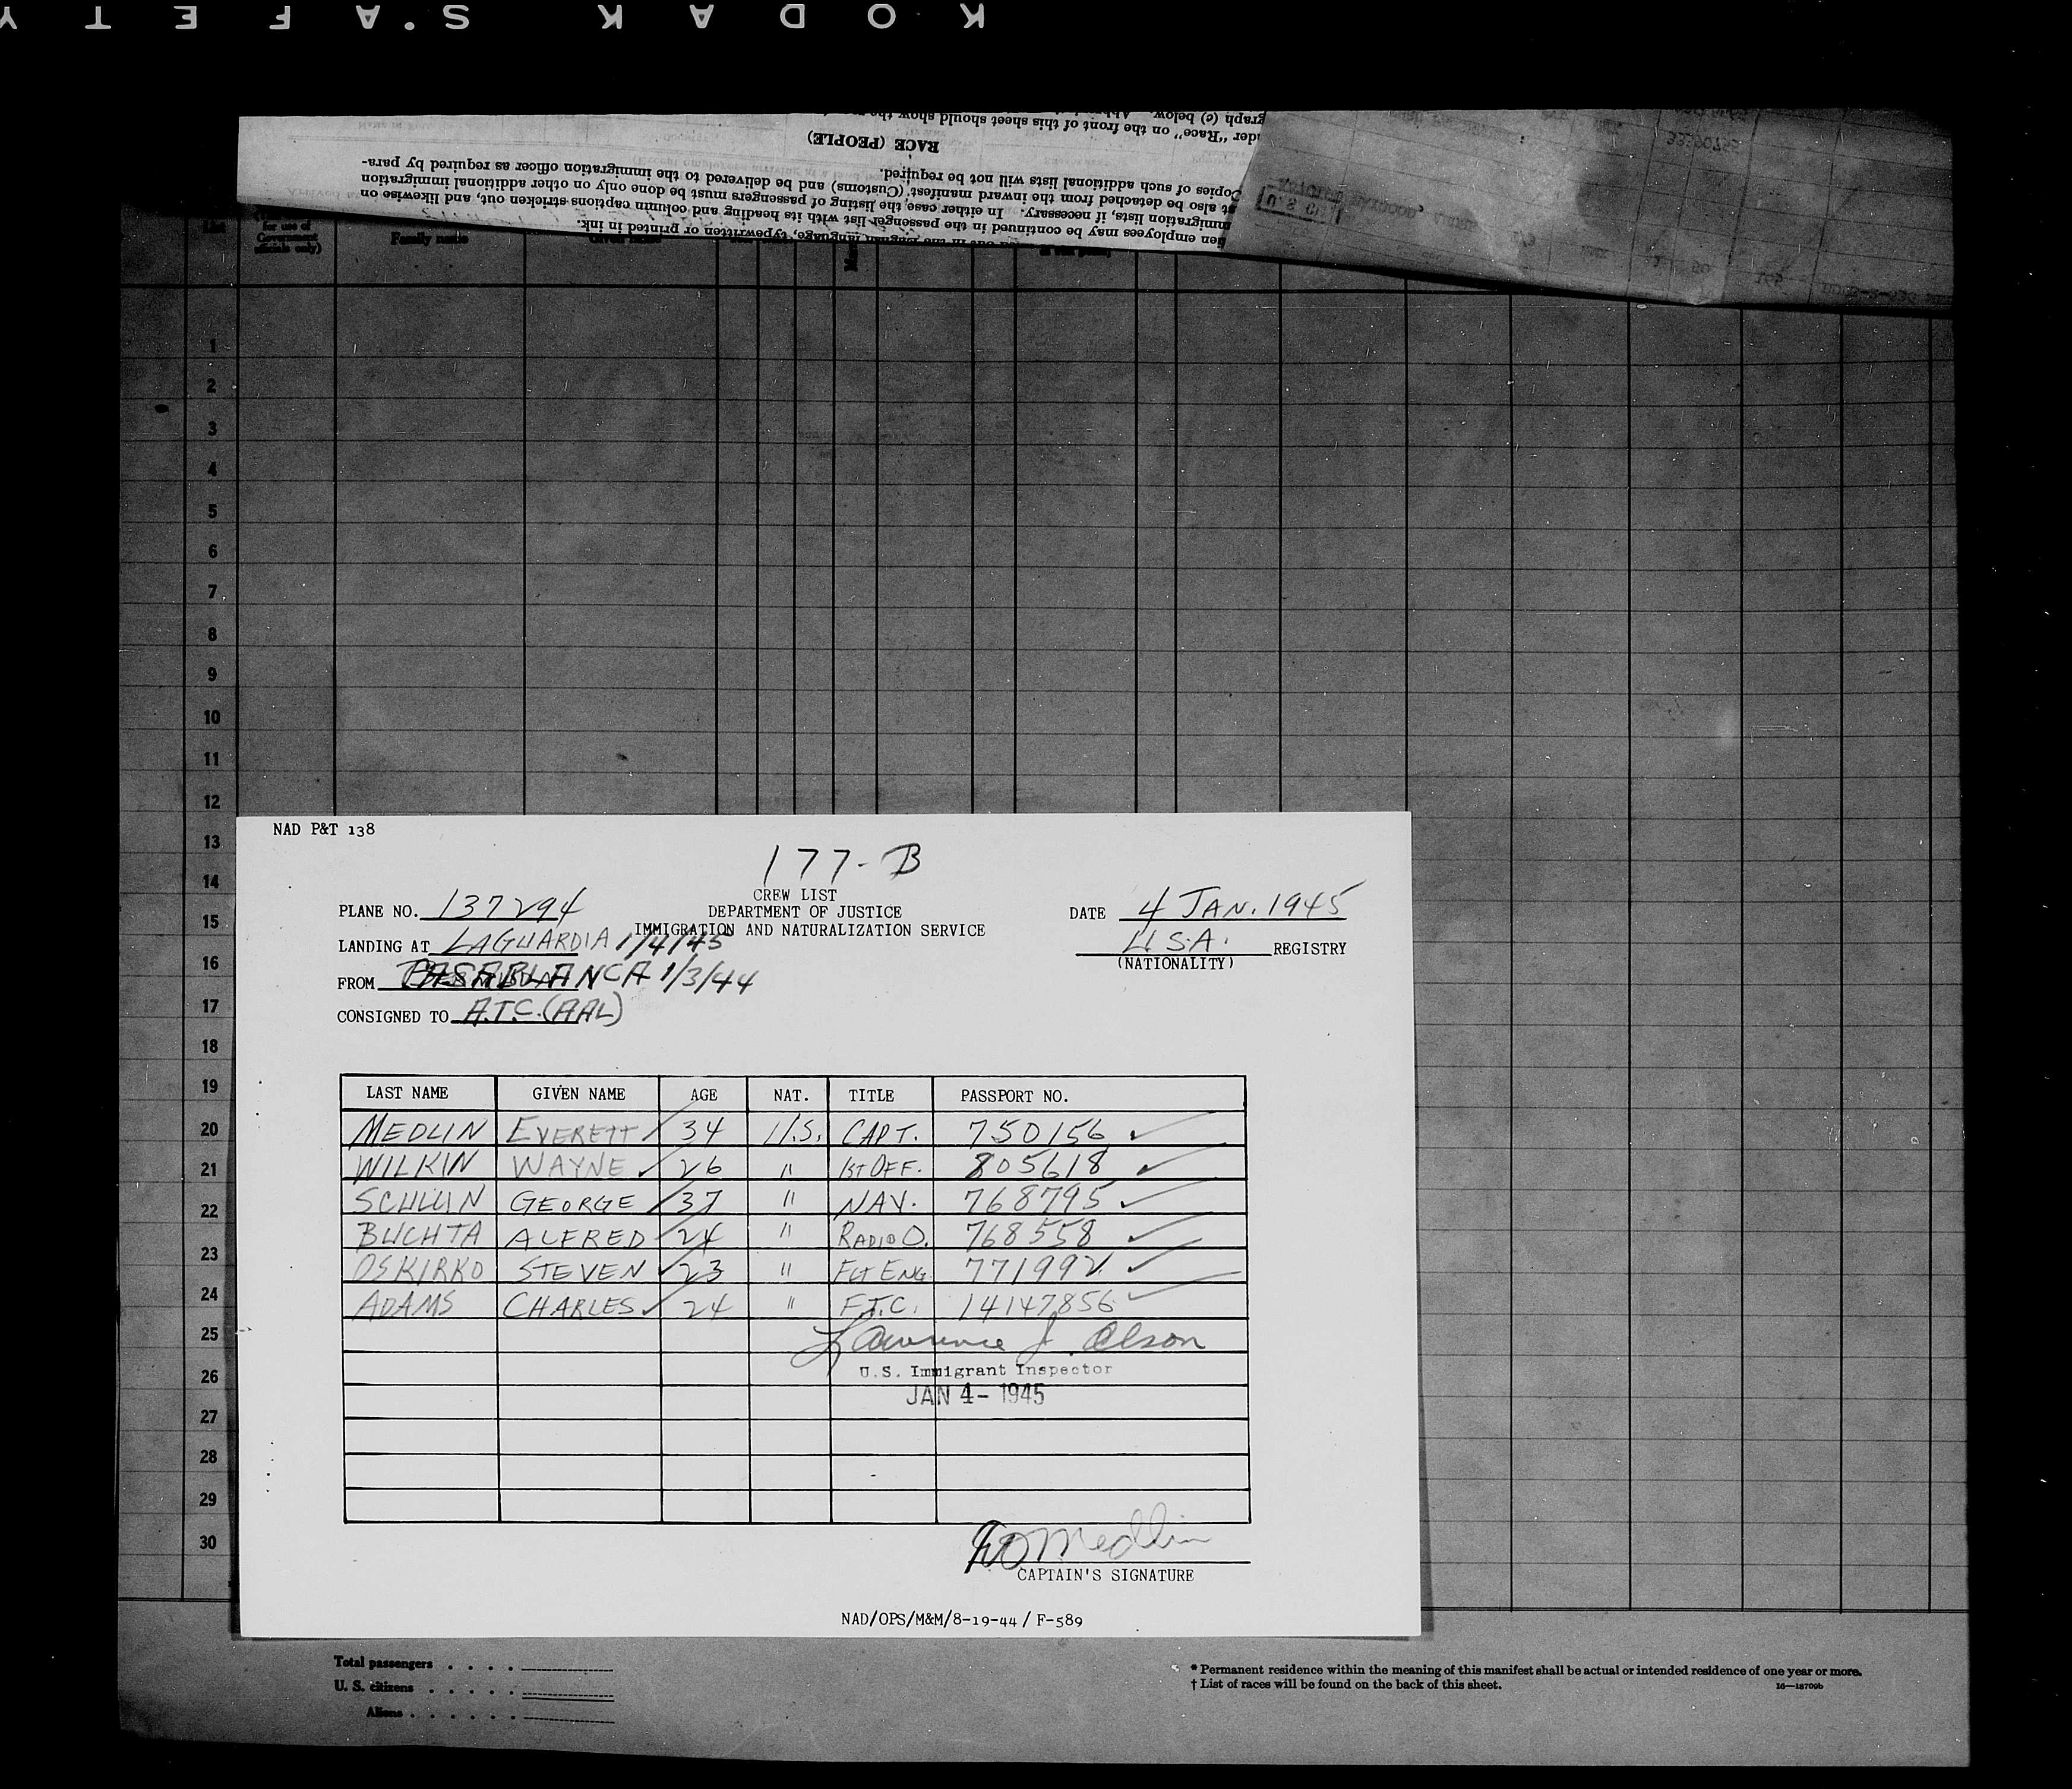 KODAK SAFETY
graph (c) below.
der "Race" on the front of this sheet should show the
RACE (PEOPLE)
Copies of such additional lists will not be required.
st also be detached from the inward manifest (Customs) and be delivered to the immigration officer as required by para-
mmigration lists, if necessary. In either case, the listing of passengers must be done only on other additional immigration
lien employees may be continued in the passenger list with its heading and column captions stricken out, and likewise on
language, typewritten or printed in ink.
for use of
Government
officials only)
Family name
Given name
1
2
3
4
5
6
7
8
9
10
11
12
13
14
15
16
17
18
19
20
21
22
23
24
25
26
27
28
29
30
NAD P&T 138
177-B
CREW LIST
DEPARTMENT OF JUSTICE
IMMIGRATION AND NATURALIZATION SERVICE
PLANE NO. 137294
DATE 4 JAN. 1945
LANDING AT LAGUARDIA 1/4/45
U.S.A. REGISTRY
(NATIONALITY)
FROM CASABLANCA 1/3/44
CONSIGNED TO A.T.C. (AAL)
LAST NAME GIVEN NAME AGE NAT. TITLE PASSPORT NO.
MEDLIN EVERETT 34 U.S. CAPT. 750156 ✓
WILKIN WAYNE ✓ 26 " 1ST OFF. 805618 ✓
GEORGE 37 " NAV. 768795 ✓
BUCHTA ALFRED 24 " RADIO O. 768558 ✓
OSKIRKO STEVEN ✓ 23 " FLT ENG 771992 ✓
ADAMS CHARLES ✓ 24 " F.T.C. 14147856 ✓
Lawrence J. Olson
U.S. Immigrant Inspector
JAN 4- 1945
Medlin
CAPTAIN'S SIGNATURE
NAD/OPS/M&M/8-19-44 / F-589
Total passengers . . . .
U. S. citizens . . . . .
Aliens . . . . . .
* Permanent residence within the meaning of this manifest shall be actual or intended residence of one year or more.
† List of races will be found on the back of this sheet.
16—18709b